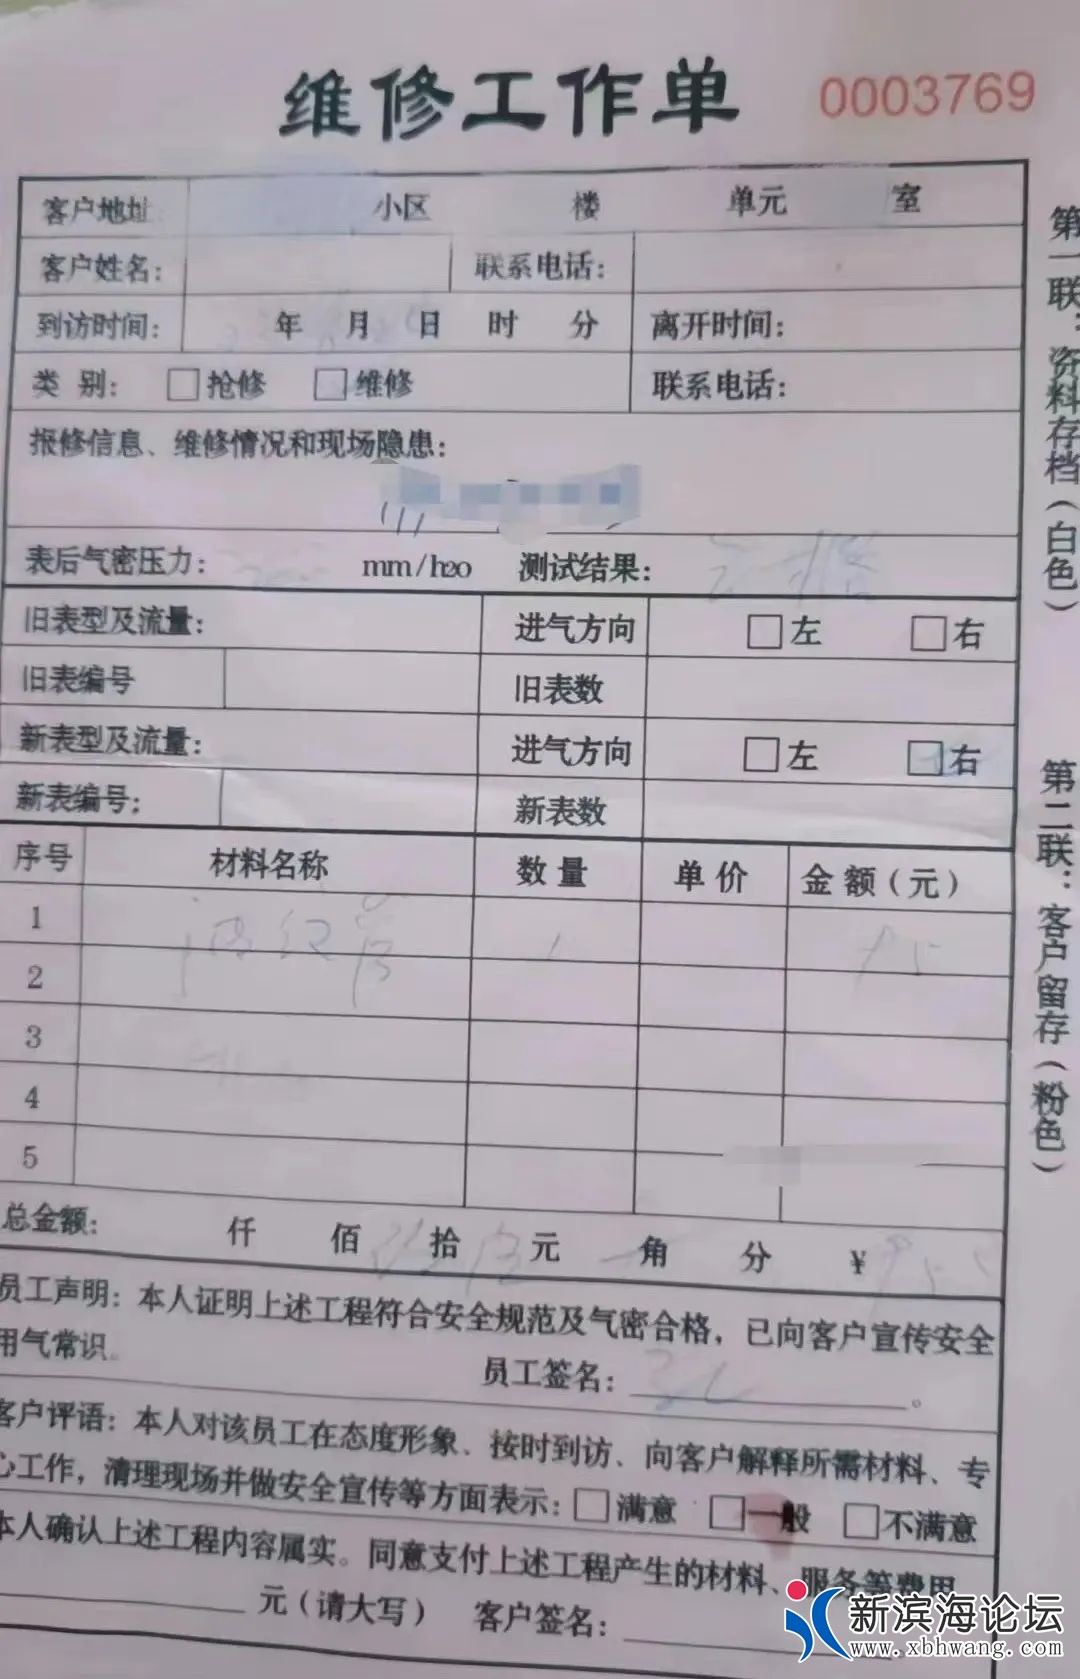 维修工作单
0003769
客户地址: 小区 楼 单元 室
客户姓名: 联系电话:
到访时间: 年 月 日 时 分 离开时间:
类 别: □抢修 □维修 联系电话:
报修信息、维修情况和现场隐患:
表后气密压力: mm/h2o 测试结果:
旧表型及流量: 进气方向 □左 □右
旧表编号 旧表数
新表型及流量: 进气方向 □左 □右
新表编号: 新表数
序号 材料名称 数量 单价 金额(元)
1 波纹管 1 95
2
3
4
5
总金额: 仟 佰 拾 元 角 分 ¥95
员工声明: 本人证明上述工程符合安全规范及气密合格, 已向客户宣传安全
用气常识。
员工签名: 。
客户评语: 本人对该员工在态度形象、按时到访、向客户解释所需材料、专
心工作, 清理现场并做安全宣传等方面表示: □满意 □一般 □不满意
本人确认上述工程内容属实。同意支付上述工程产生的材料、服务等费用
元(请大写) 客户签名:
第一联: 资料存档(白色)
第二联: 客户留存(粉色)
新滨海论坛
www.xbhwang.com